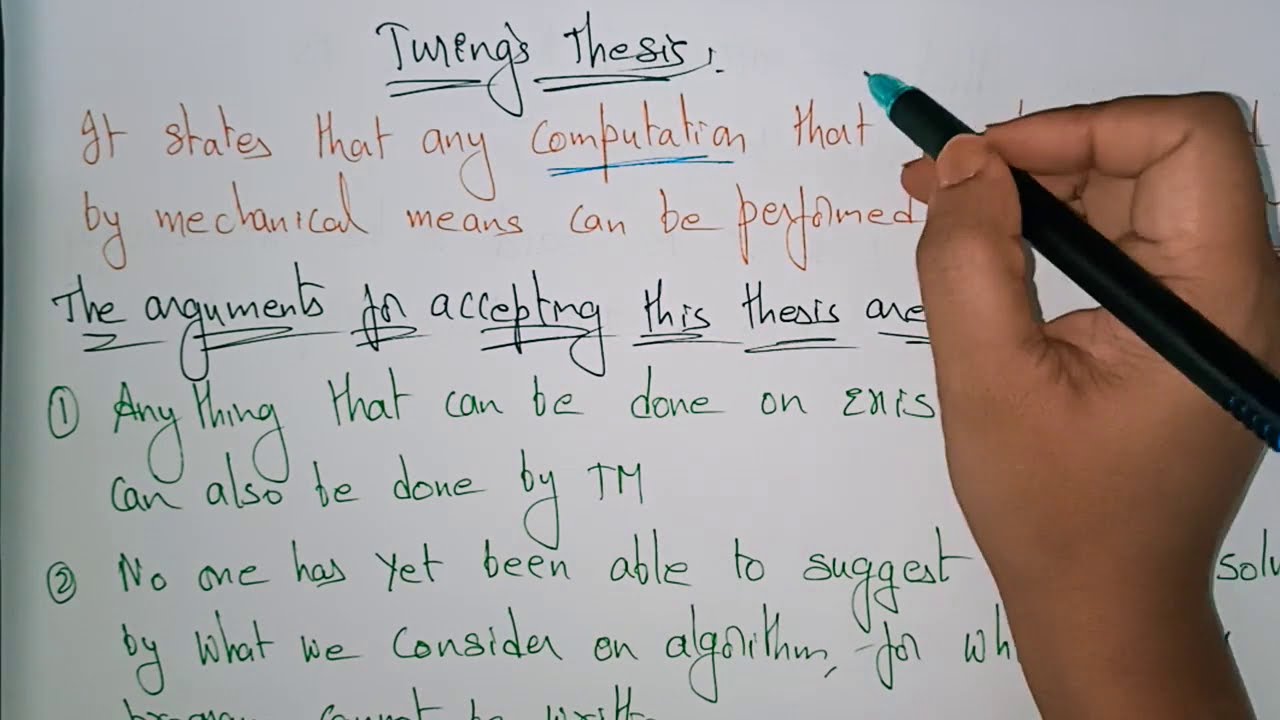 Tureng's Thesis.
It states that any computation that
by mechanical means can be performed
The arguments for accepting this thesis are
① Any thing that can be done on
can also be done by TM
② No one has yet been able to suggest
by what we consider on algorithm, for